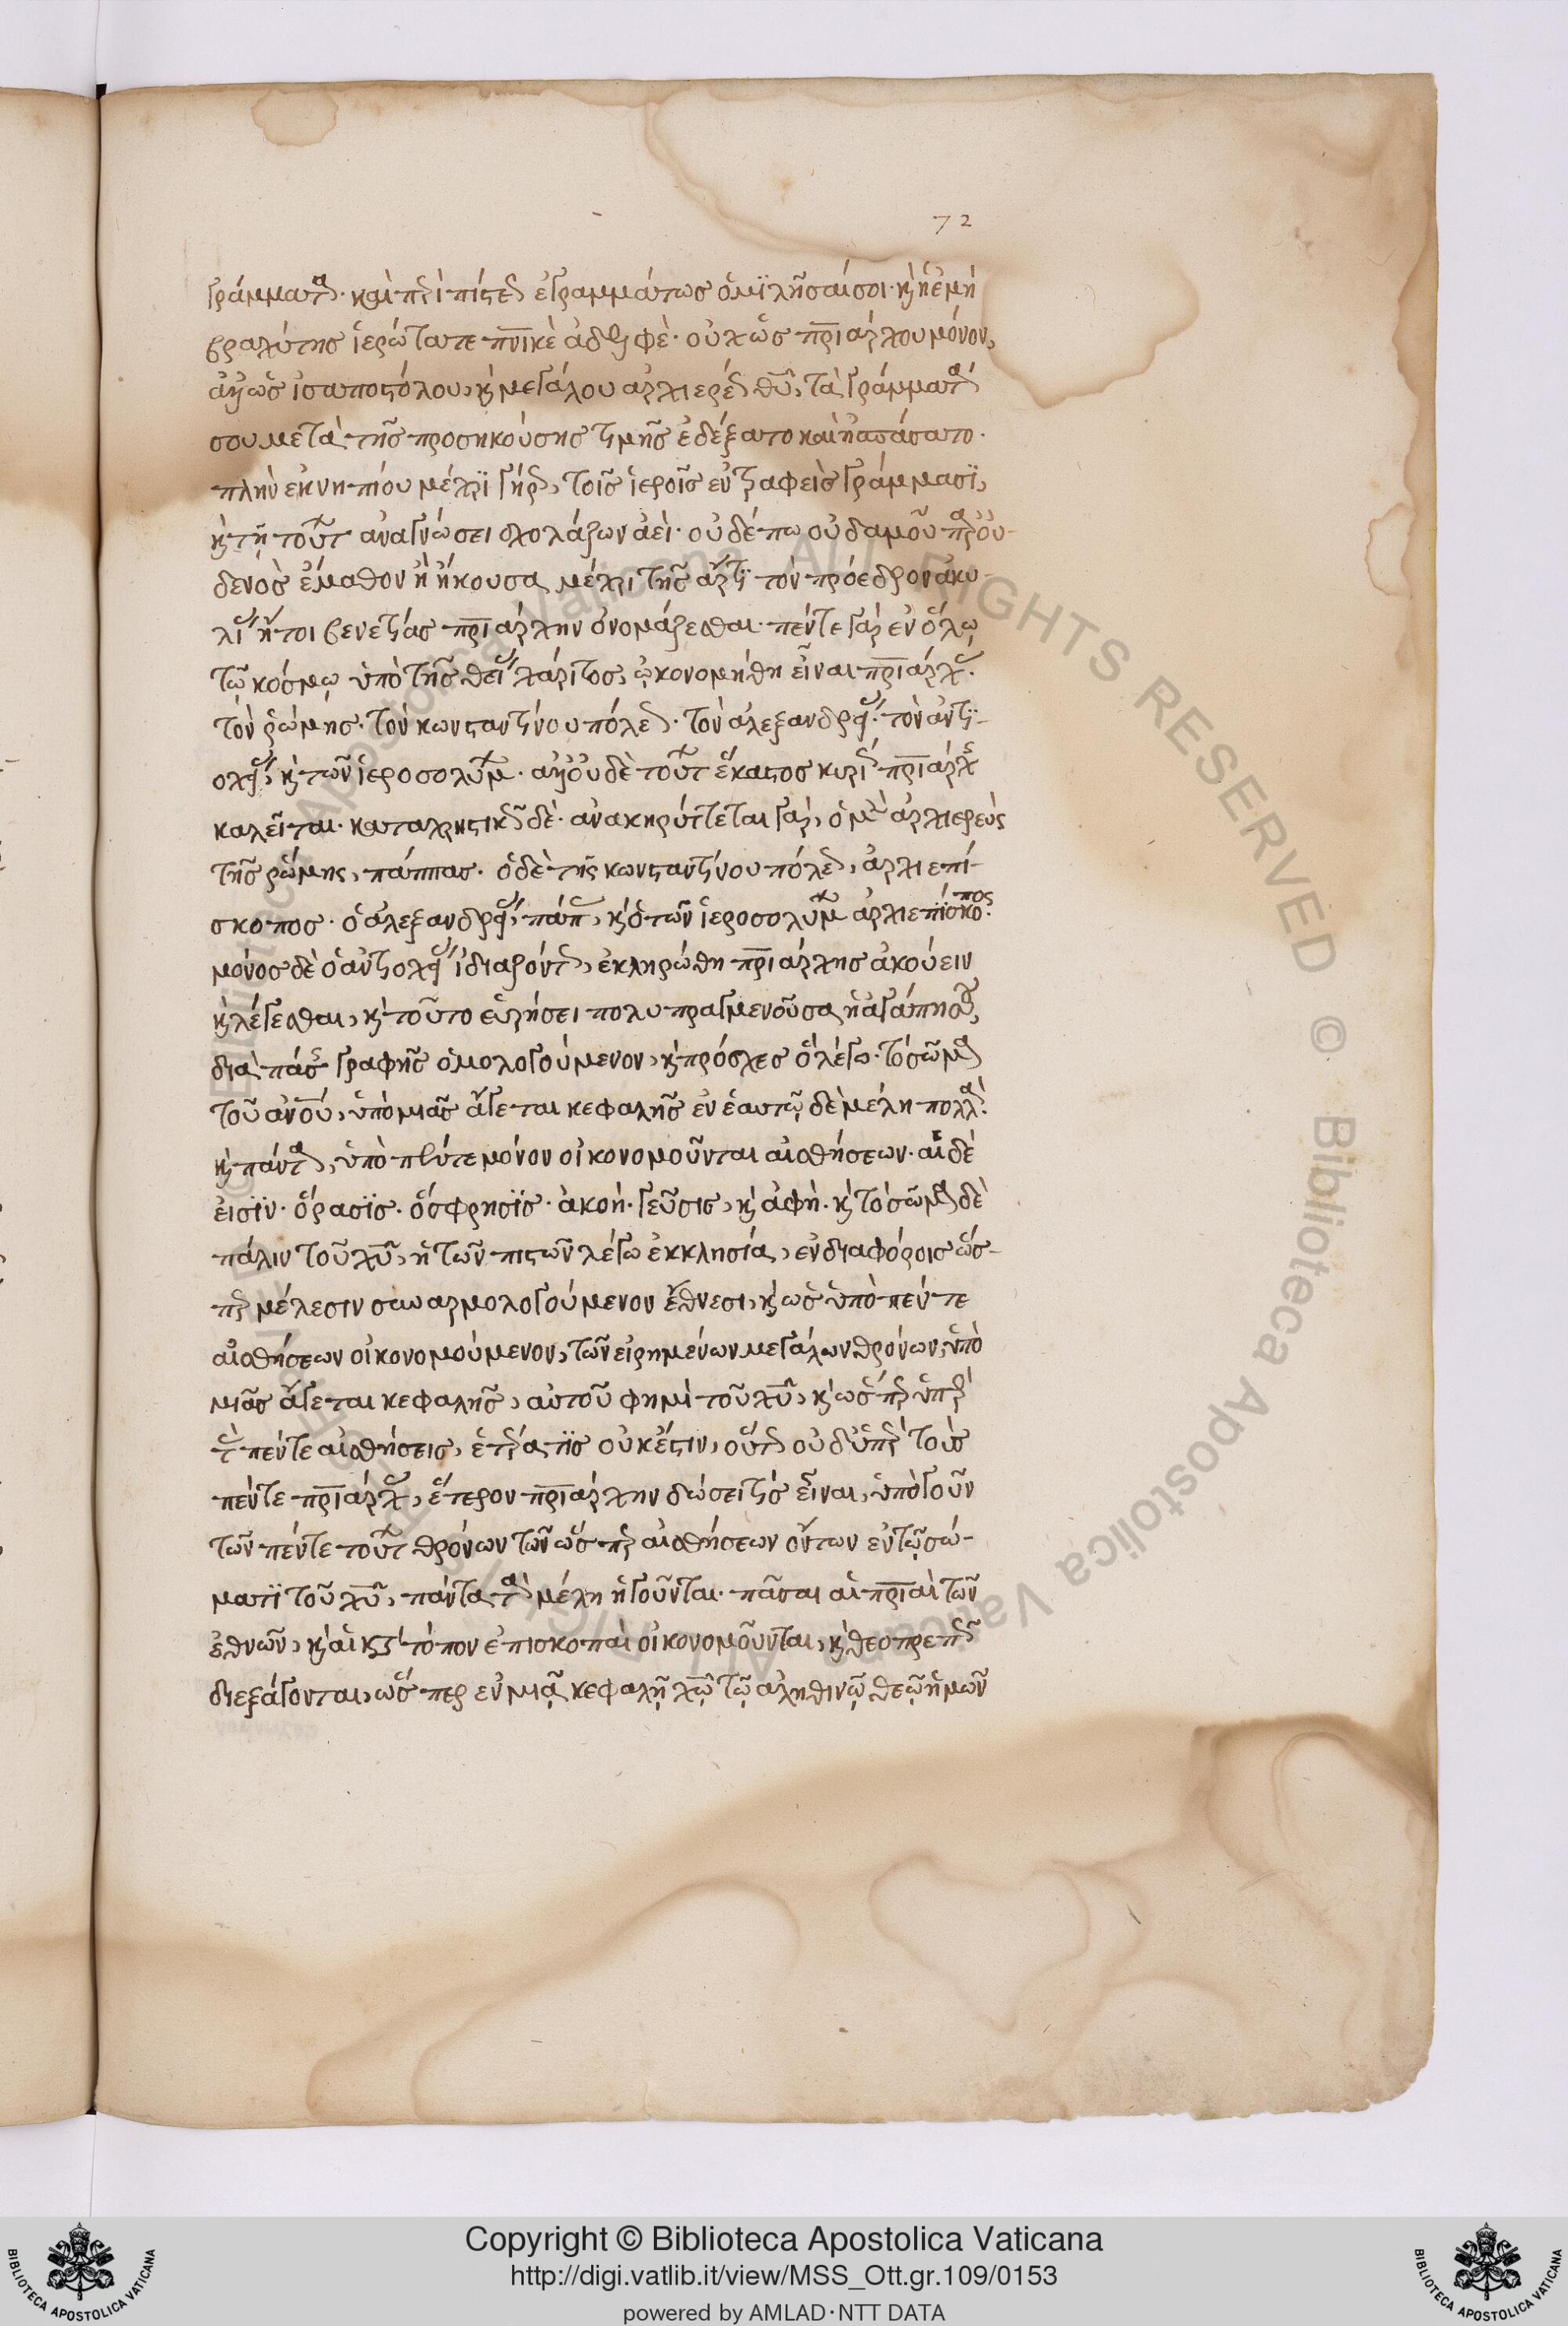 72
γράμματα· καὶ περὶ πίστεως ἐγραμμάτως ὁμϊλῆσαί σοι· κὴ ἡ ἐμὴ
βραχύτης ἱερώτατε πνικὲ ἀδελφὲ· οὐχ ὡς πριάρχου μόνον,
ἀλλ' ὡς ἰσαποστόλου, καὶ μεγάλου ἀρχιερέως θυ, τὰ γράμματά
σου μετὰ τῆς προσηκούσης τιμῆς ἐδέξατο καὶ ἠσπάσατο·
πλὴν ἐκ νηπίου μέχρϊ γήρως, τοῖς ἱεροῖς ἐντραφεὶς γράμμασϊ,
καὶ τῇ τούτων ἀναγνώσει σχολάζων ἀεὶ· οὐδέπω οὐδαμοῦ παρ' οὐ-
δενὸς ἔμαθον ἢ ἤκουσα μέχρι τῆς ἄρτϊ τὸν πρόεδρον ἀκυ-
λίας ἤτοι βενετίας πριάρχην ὀνομάζεσθαι· πέντε γὰρ ἐν ὅλῳ
τῷ κόσμῳ ὑπὸ τῆς θείας χάριτος, ᾠκονομήθη εἶναι πριάρχας·
τὸν ῥώμης· τὸν κωνσταντίνου πόλεως· τὸν ἀλεξανδρείας· τὸν ἀντϊ-
οχείας, καὶ τῶν ἱεροσολύμων· ἀλλ' οὐδὲ τούτων ἕκαστος κυρίως πριάρχης
καλεῖται· καταχρηστικῶς δὲ· ἀνακηρύττεται γὰρ, ὁ μὲν ἀρχιερεὺς
τῆς ῥώμης, πάππας· ὁ δὲ τῆς κωνσταντίνου πόλεως, ἀρχιεπί-
σκοπος· ὁ ἀλεξανδρείας, πάπας, καὶ ὁ τῶν ἱεροσολύμων ἀρχιεπίσκοπος·
μόνος δὲ ὁ ἀντιοχείας ἰδιαζόντως, ἐκληρώθη πριάρχης ἀκούειν
καὶ λέγεσθαι, καὶ τοῦτο εὑρήσει πολυπραγμενοῦσα ἡ ἀγάπη σου,
διὰ πάσης γραφῆς ὁμολογούμενον, καὶ πρόσχες ὃ λέγω· τὸ σῶμα
τοῦ ἀνου, ὑπὸ μιᾶς ἄγεται κεφαλῆς ἐν ἑαυτῷ δὲ μέλη πολλὰ·
καὶ πάντα, ὑπὸ πέντε μόνον οἰκονομοῦνται αἰσθήσεων· αἳ δέ
εἰσϊν· ὅρασϊς· ὄσφρησϊς· ἀκοὴ· γεῦσις, καὶ ἁφὴ· καὶ τὸ σῶμα δὲ
πάλιν τοῦ χυ, ἡ τῶν πιστῶν λέγω ἐκκλησία, ἐν διαφόροις ὥς-
περ μέλεσιν συναρμολογούμενον ἔθνεσι, καὶ ὡς ὑπὸ πέντε
αἰσθήσεων οἰκονομούμενον, τῶν εἰρημένων μεγάλων θρόνων, ὑπὸ
μιᾶς ἄγεται κεφαλῆς, αὐτοῦ φημὶ τοῦ χυ, καὶ ὥσπερ ὑπὲρ
τὰς πέντε αἰσθήσεις, ἑτέρα τϊς οὐκ ἔστιν, οὕτως οὐδ' ὑπὲρ τοὺς
πέντε πριάρχας, ἕτερον πριάρχην δώσει τϊς εἶναι, ὑπὸ γοῦν
τῶν πέντε τούτων θρόνων τῶν ὥσπερ αἰσθήσεων ὄντων ἐν τῷ σώ-
ματϊ τοῦ χυ, πάντα τὰ μέλη ἡγοῦνται· πᾶσαι αἱ πριαὶ τῶν
ἐθνῶν, καὶ αἱ κατὰ τόπον ἐπισκοπαὶ οἰκονομοῦνται, καὶ θεοπρεπῶς
διεξάγονται, ὥσπερ ἐν μιᾷ κεφαλῇ χω τῷ ἀληθινῷ θεῷ ἡμῶν
Copyright © Biblioteca Apostolica Vaticana
http://digi.vatlib.it/view/MSS_Ott.gr.109/0153
powered by AMLAD·NTT DATA
BIBLIOTECA APOSTOLICA VATICANA
BIBLIOTECA APOSTOLICA VATICANA